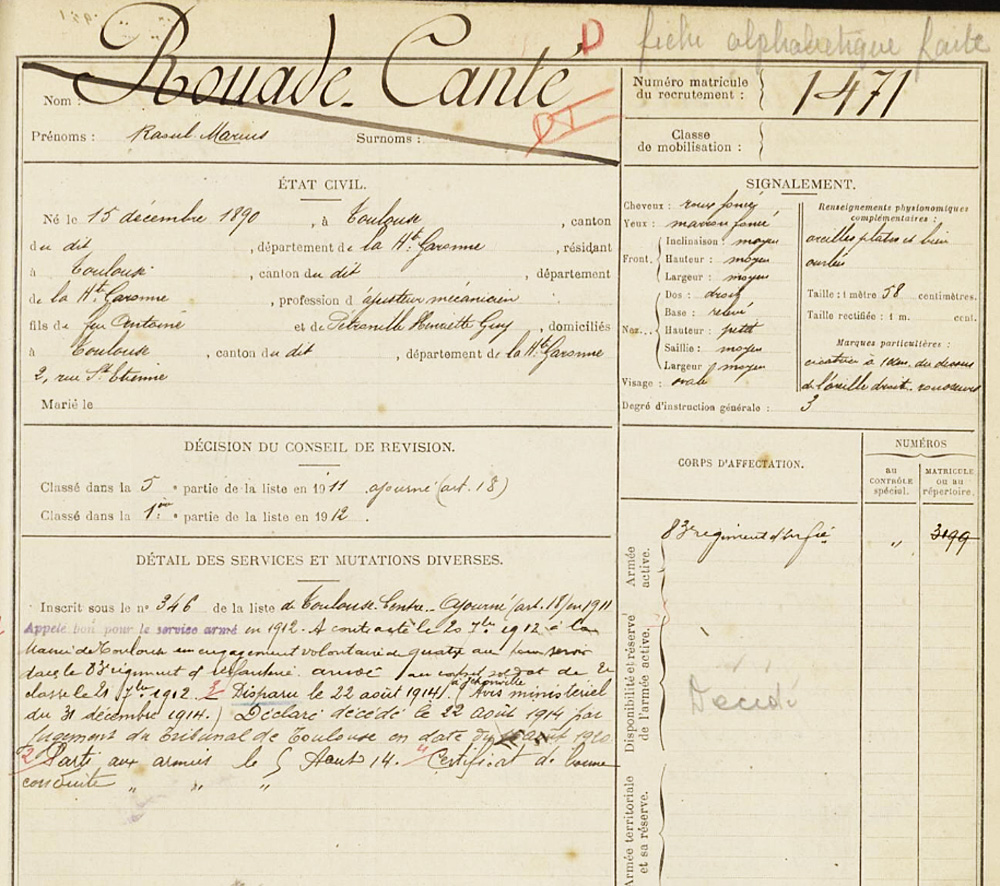 D fiche alphabétique faite
Nom : Rouade-Canté
Prénoms : Raoul Marius Surnoms :
Numéro matricule
du recrutement : 1471
Classe
de mobilisation :
ÉTAT CIVIL.
Né le 15 décembre 1890 , à Toulouse , canton
du dit , département de la Hte Garonne , résidant
à Toulouse , canton du dit , département
de la Hte Garonne , profession d'ajusteur mécanicien
fils de feu Antoine et de Pétronille Henriette Guy , domiciliés
à Toulouse , canton du dit , département de la Hte Garonne
2, rue St Etienne
Marié le
SIGNALEMENT.
Cheveux : roux foncé
Yeux : marron foncé
Front. Inclinaison : moyen
Hauteur : moyen
Largeur : moyen
Nez. Dos : droit
Base : relevé
Hauteur : petit
Saillie : moyen
Largeur : moyen
Visage : ovale
Renseignements physionomiques
complémentaires :
oreilles plates et bien
ourlées
Taille : 1 mètre 58 centimètres.
Taille rectifiée : 1 m. cent.
Marques particulières :
cicatrice à du dessus
de l'oreille droit.
Degré d'instruction générale : 3
DÉCISION DU CONSEIL DE REVISION.
Classé dans la 5 e partie de la liste en 1911 ajourné (art. 18)
Classé dans la 1ère partie de la liste en 1912 .
DÉTAIL DES SERVICES ET MUTATIONS DIVERSES.
Inscrit sous le n° 346 de la liste de Toulouse-Centre Ajourné (art. 18) en 1911
Appelé bon pour le service armé en 1912. A contracté le 20 7bre 1912 à la
Mairie de Toulouse un engagement volontaire de quatre ans pour servir
dans le 83e régiment d'Infanterie arrivé au corps et soldat de 2e
classe le 21 7bre 1912. 2 Disparu le 22 août 1914 à Jehonville (Avis ministériel
du 31 décembre 1914.) Déclaré décédé le 22 août 1914 par
jugement du Tribunal de Toulouse en date du août 1920
2 Parti aux armées le 5 Août 14. " Certificat de bonne
conduite " " "
CORPS D'AFFECTATION.
NUMÉROS
au
CONTRÔLE
spécial.
MATRICULE
ou au
répertoire.
Armée
active.
83e régiment d'Infie " 3199
Disponibilité et réserve
de l'armée active.
Décédé
Armée territoriale
et sa réserve.